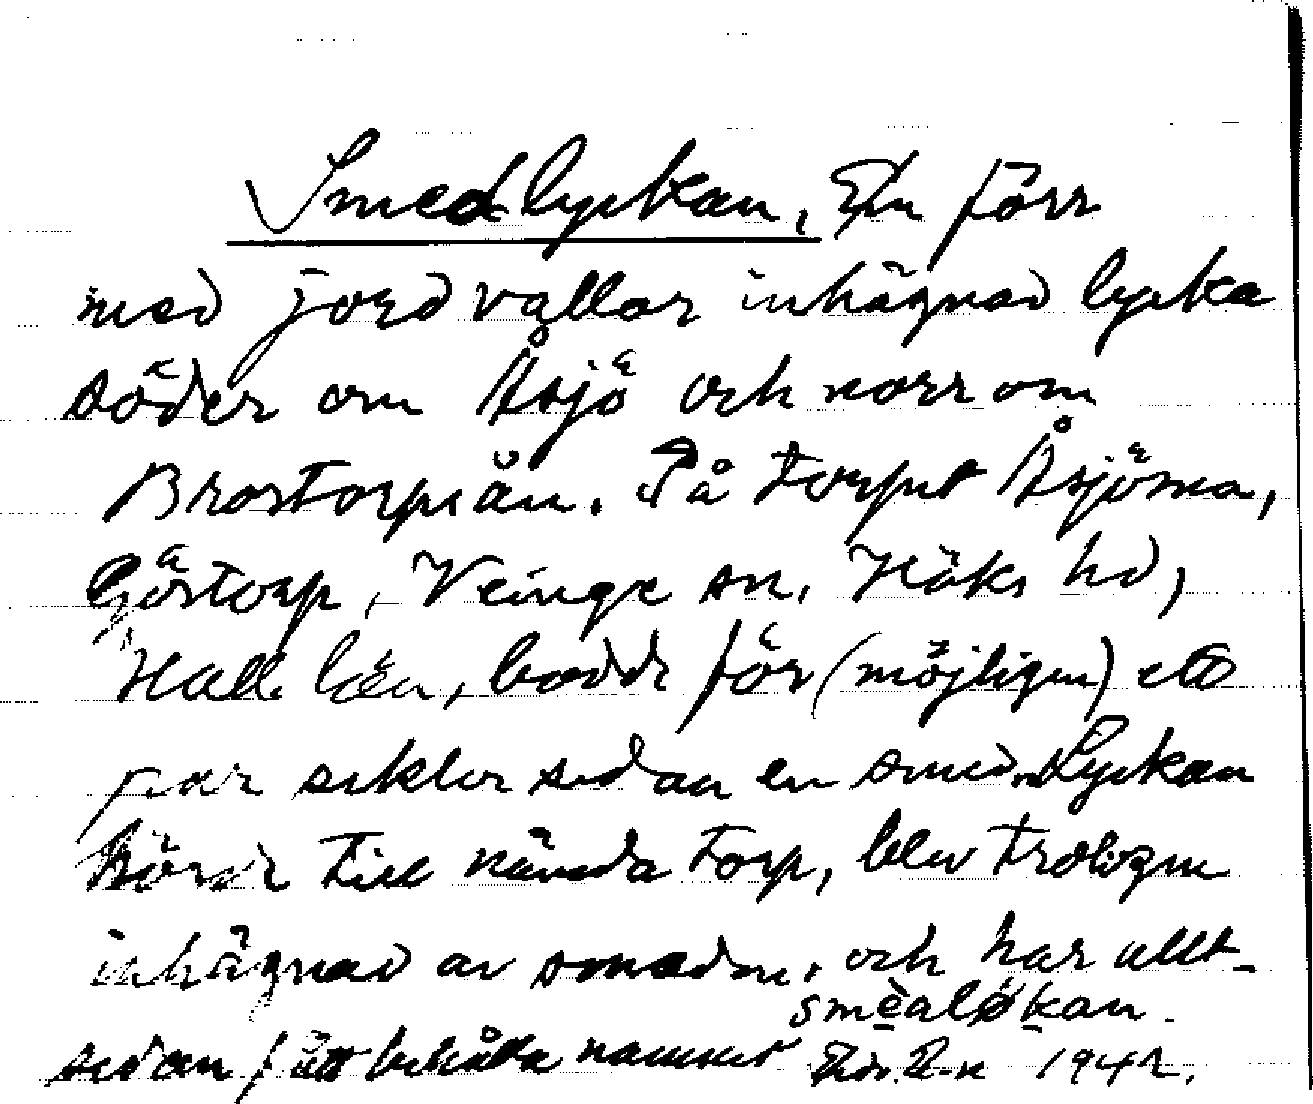 Smedlyckan. En förr
med jordvallar inhägnad lycka
söder om Åsjö och norr om
Brostorpsån. På torpet Åsjöma,
Göstorp, Veinge sn, Höks hd,
Hall. län, bodde för (möjligen) ett
par sekler sedan en smed. Lyckan
hörde till nämda torp, blev troligen
inhägnad av smeden, och har allt-
sedan fått behålla namnet
smèaløkan.
1942.